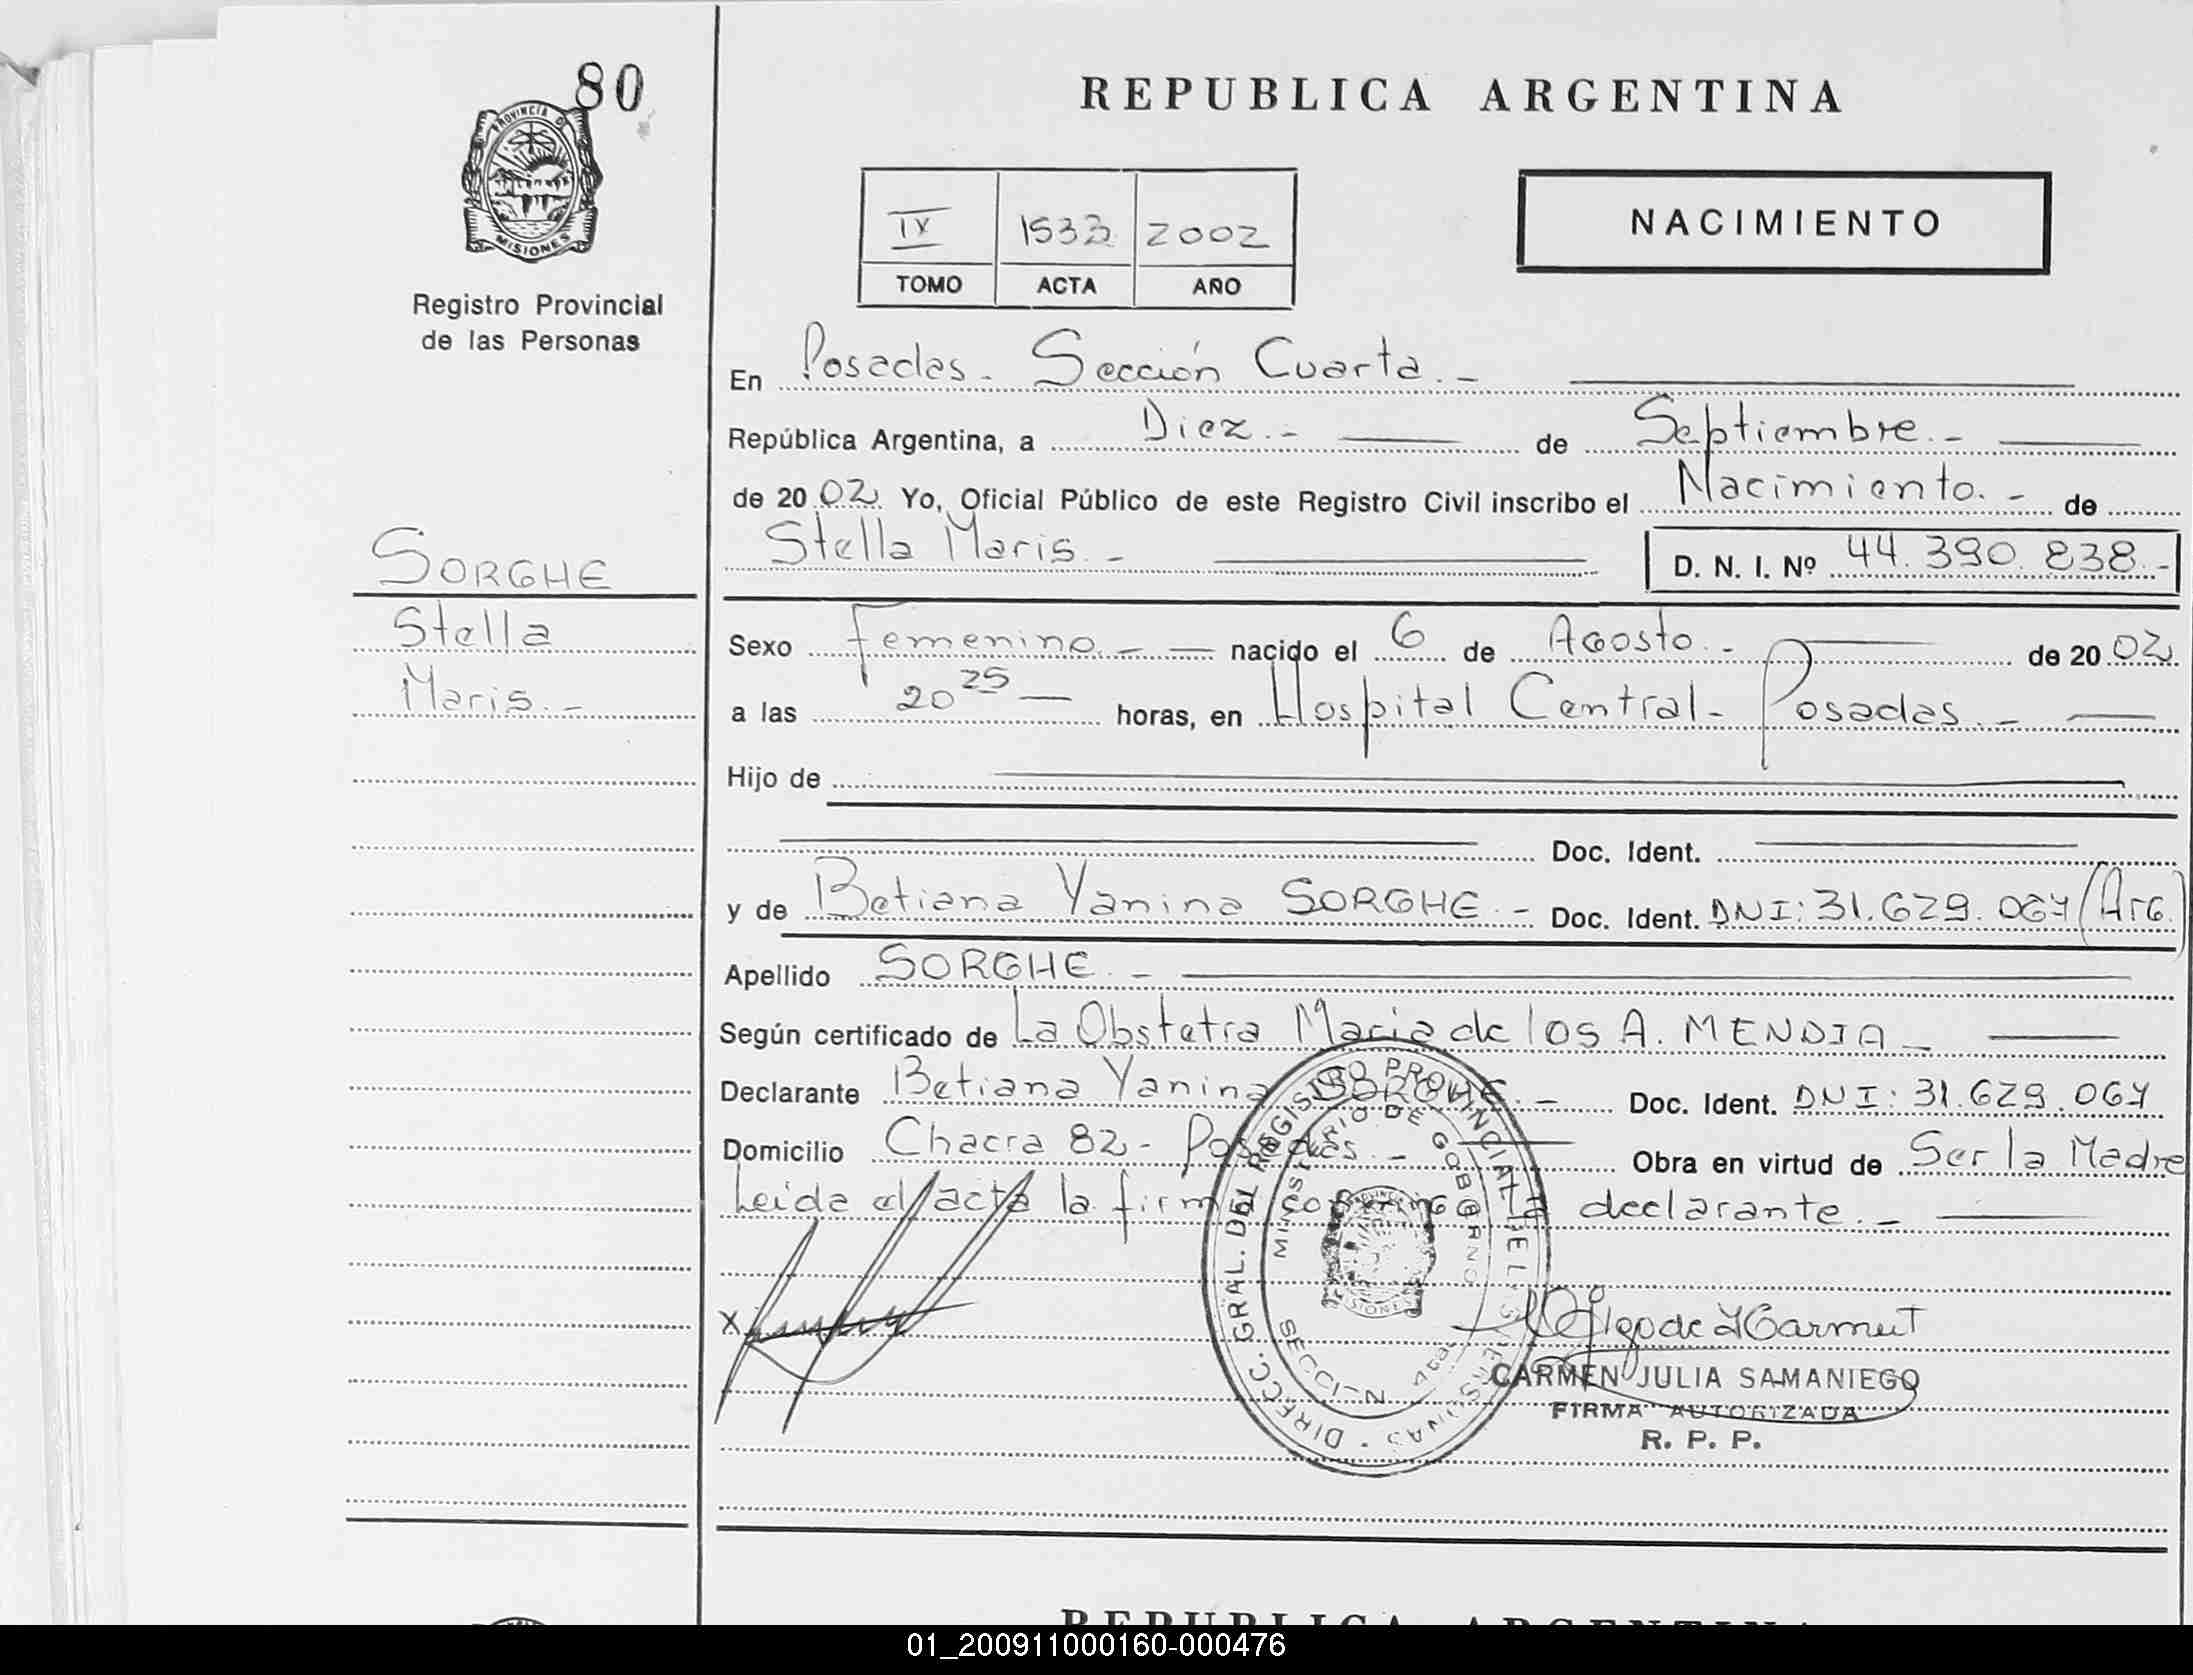 80
PROVINCIA DE
MISIONES
Registro Provincial
de las Personas
SORGHE
Stella
Maris.-
REPUBLICA ARGENTINA
IX 1533 2002
TOMO ACTA AÑO
NACIMIENTO
En Posadas.- Sección Cuarta.-
República Argentina, a Diez.- de Septiembre.-
de 2002 Yo, Oficial Público de este Registro Civil inscribo el Nacimiento.- de
Stella Maris.- D. N. I. Nº 44.390.838.-
Sexo Femenino.- nacido el 6 de Agosto.- de 2002
a las 20 25 horas, en Hospital Central- Posadas.-
Hijo de
Doc. Ident.
y de Betiana Yanina SORGHE.- Doc. Ident. DNI: 31.629.067 (Arg.)
Apellido SORGHE.-
Según certificado de La Obstetra Maria de los A. MENDIA-
Declarante Betiana Yanina SORGHE.- Doc. Ident. DNI: 31.629.067
Domicilio Chacra 82- Posadas.- Obra en virtud de Ser la Madre
Leida el acta la firma conmigo la declarante.-
X
DIRECC. GRAL. DEL REGISTRO PROVINCIAL DE LAS PERSONAS
MINISTERIO DE GOBIERNO
SECCION
MISIONES
CARMEN JULIA SAMANIEGO
FIRMA AUTORIZADA
R. P. P.
REPUBLICA ARGENTINA
01_200911000160-000476